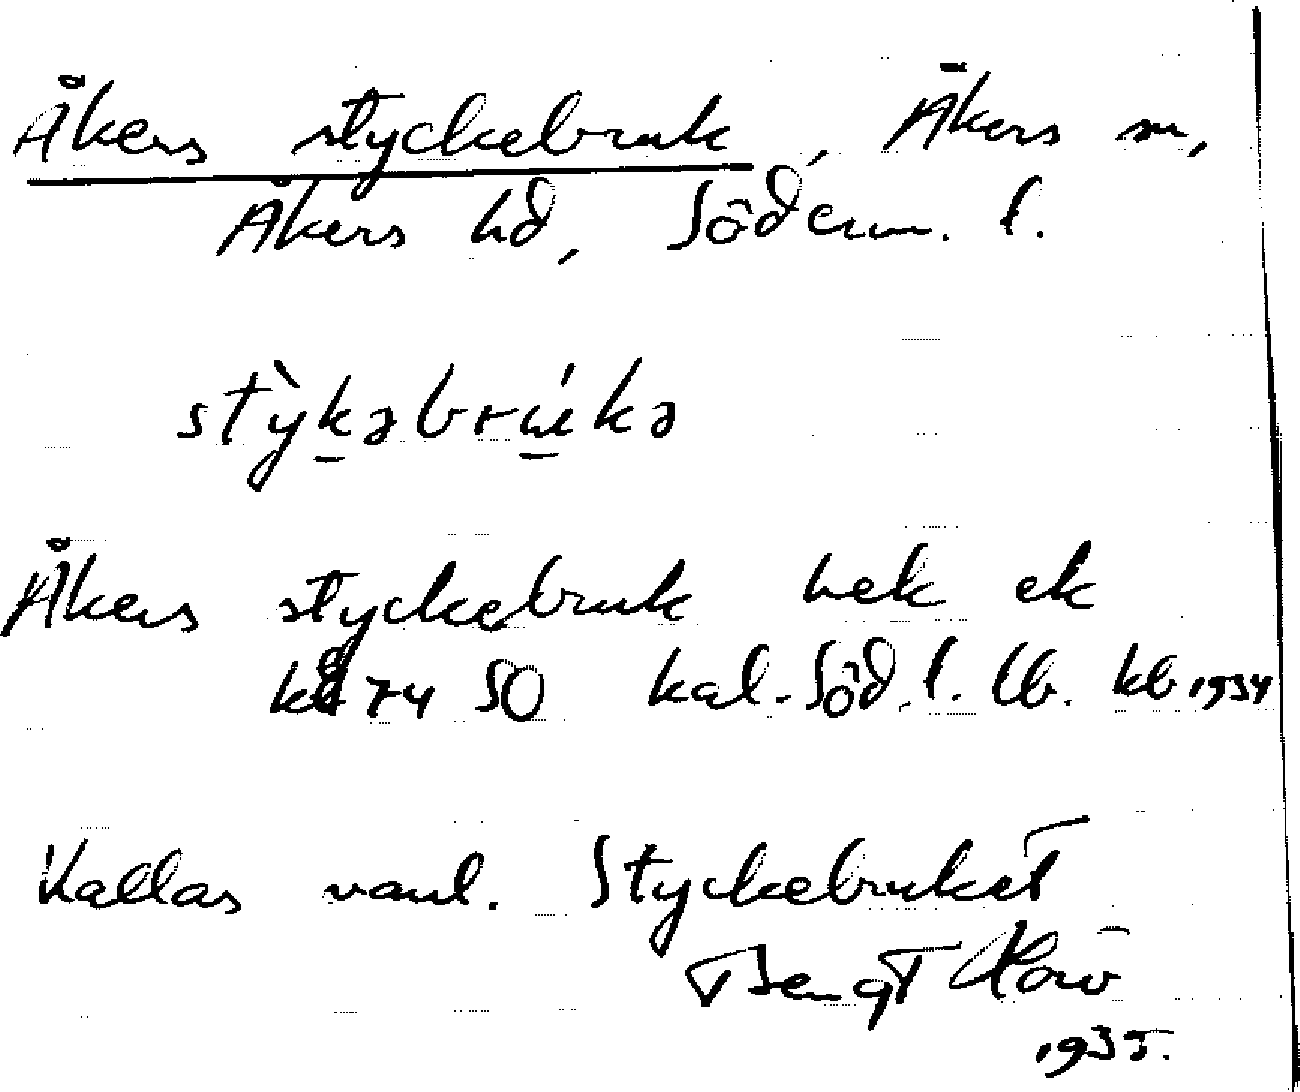 Åkers styckebruk, Åkers sn,
Åkers hd, Söderm. l.
stỳk̲əbrú̲kə
Åkers styckebruk hek ek
74 SO kal. Söd. l. lb. kb 1934
Kallas vanl. Styckebruket
Bengt
1935.